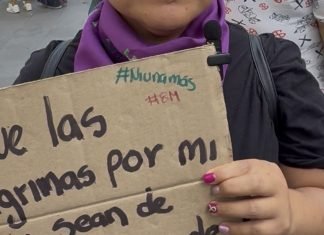 #Niunamás
#8M
ue las
grimas por mi
sean de